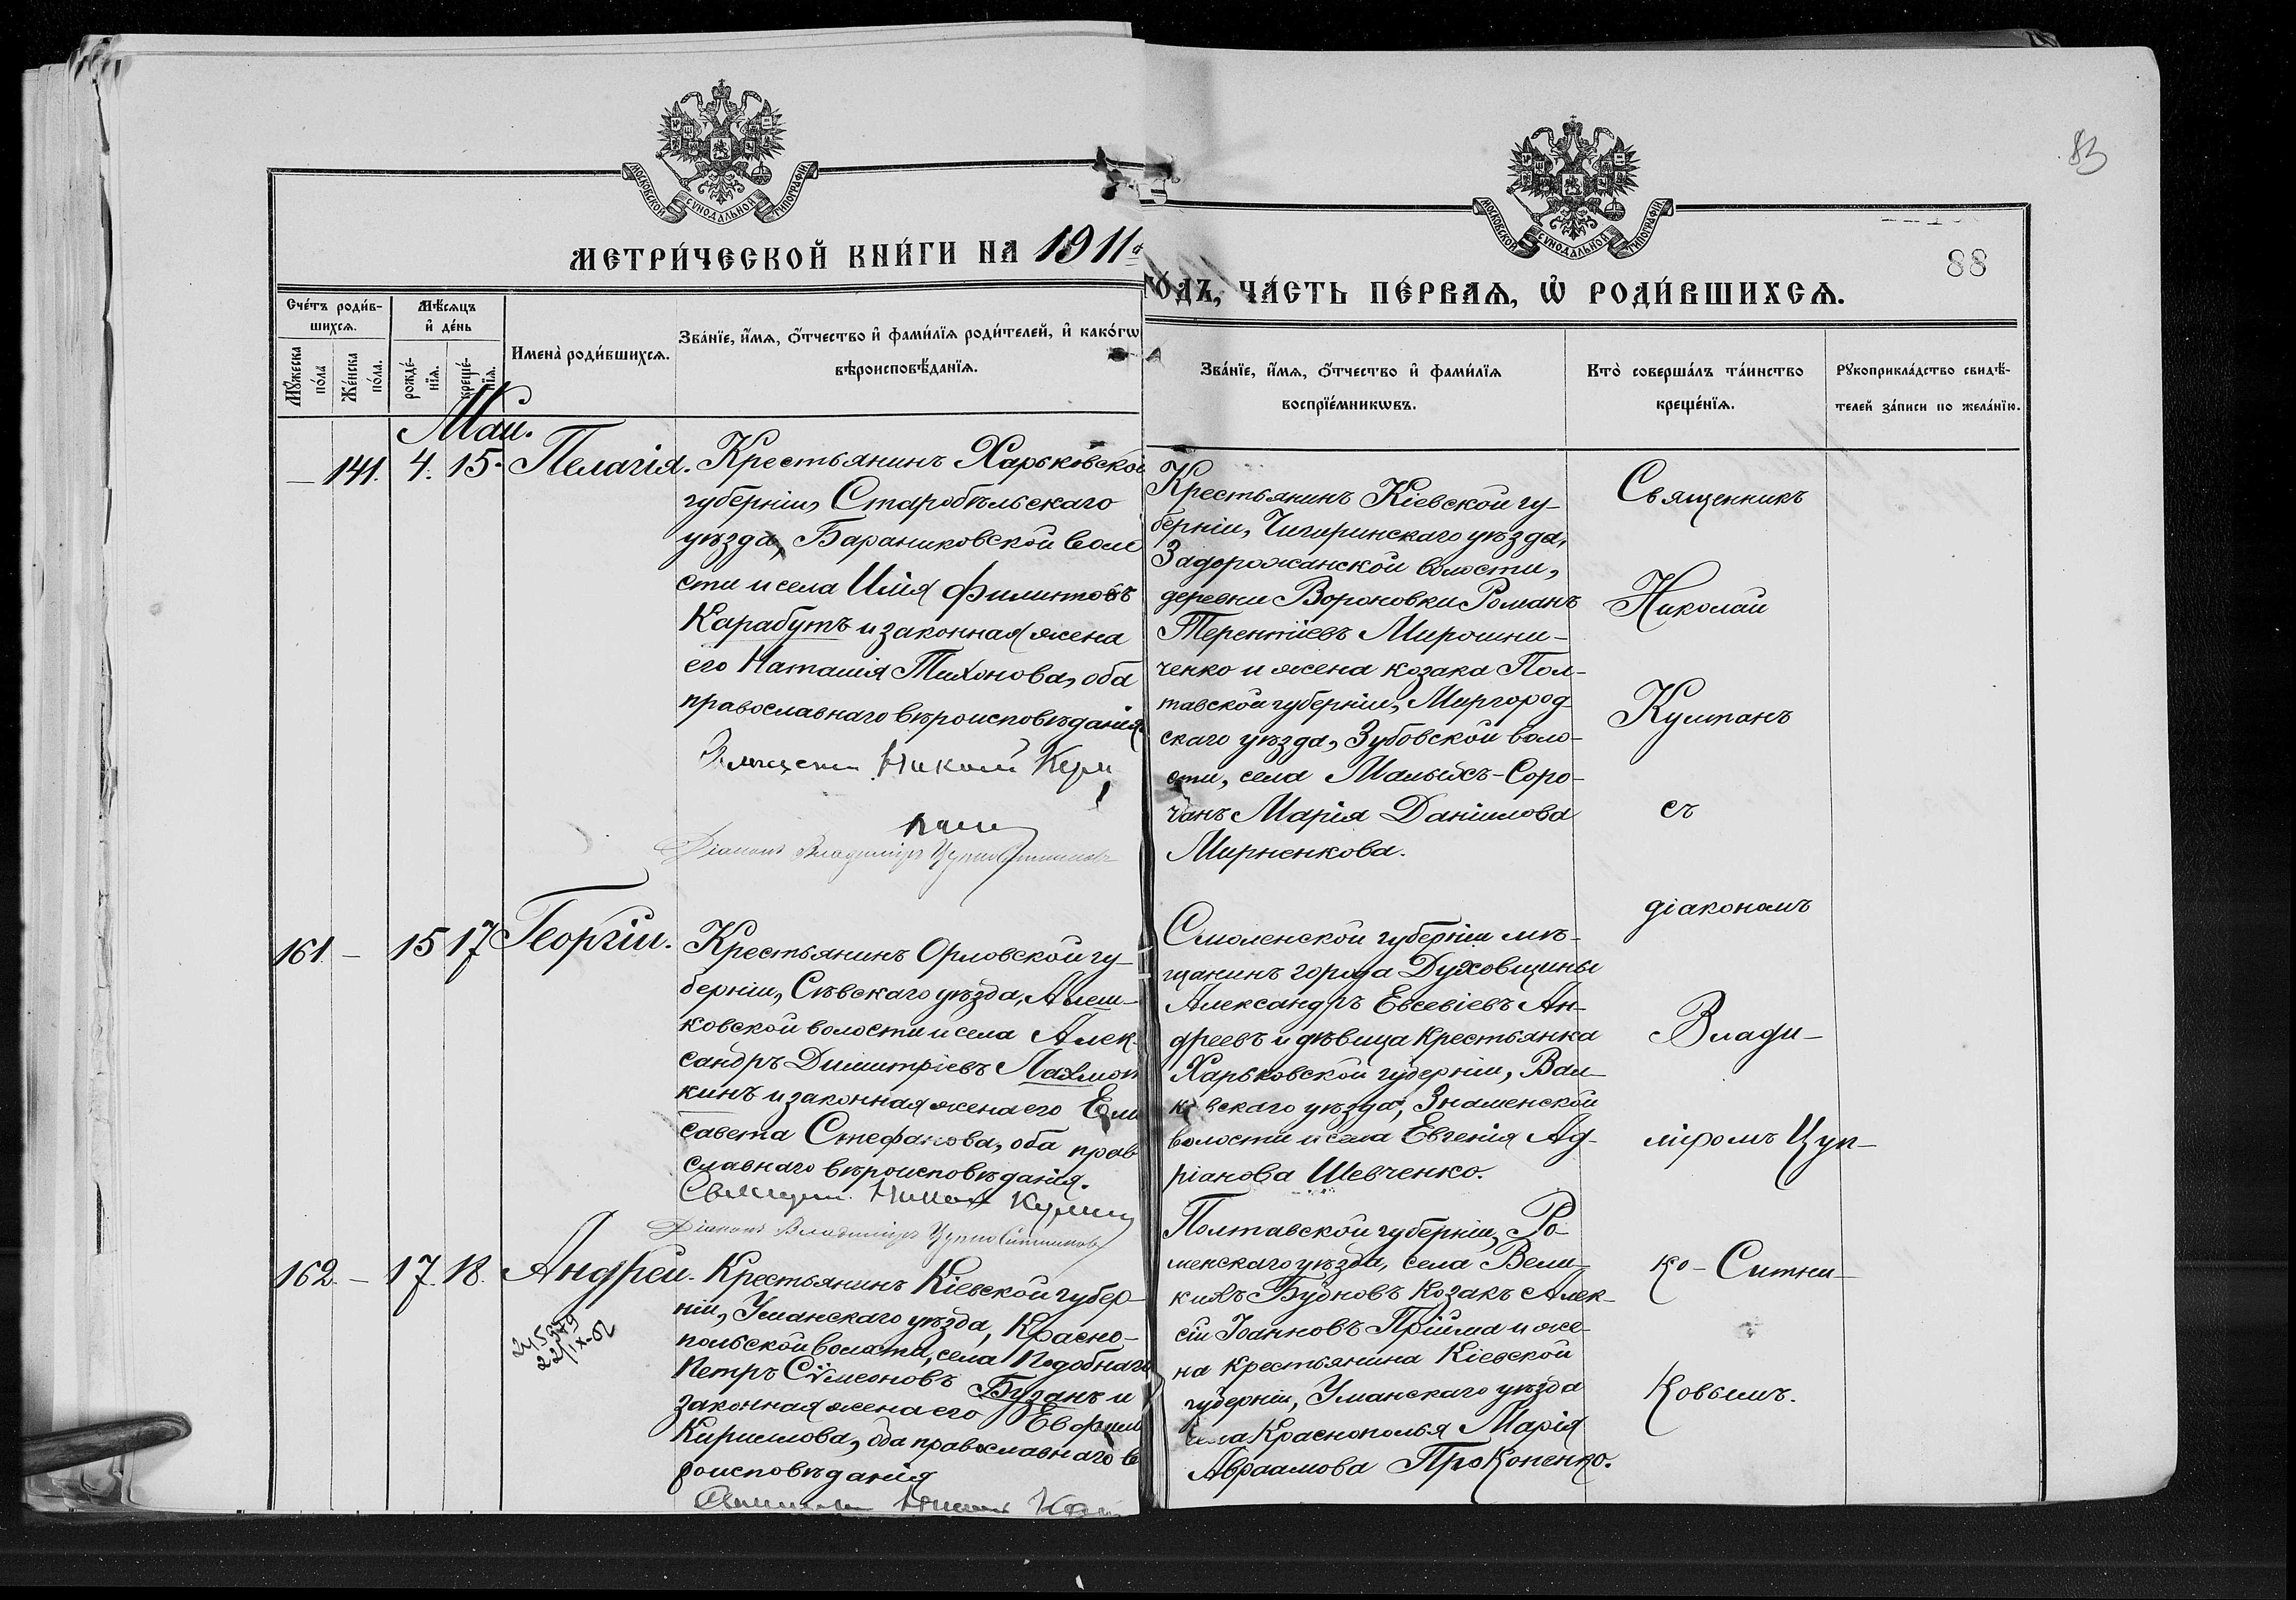 83
МОСКОВСКОЙ СѴНОДАЛЬНОЙ ТИПОГРАФІИ
МОСКОВСКОЙ СѴНОДАЛЬНОЙ ТИПОГРАФІИ
88
МЕТРИ́ЧЕСКОЙ КНИ́ГИ НА 1911й
ГО́ДЪ, ЧА́СТЬ ПЕ́РВАѦ, Ѡ҆ РОДИ́ВШИХСѦ.
Сче́тъ роди́в-
шихсѧ.
Мꙋ́жеска
по́ла
Же́нска
по́ла.
Мѣ́сѧцъ
и҆ де́нь
рожде́-
нїѧ.
креще́-
нїѧ.
Имена̀ роди́вшихсѧ.
Зва́нїе, и҆́мѧ, ѻ҆́тчество и҆ фами́лїѧ роди́телей, и҆ како́гѡ
вѣроисповѣ́данїѧ.
Зва́нїе, и҆́мѧ, ѻ҆́тчество и҆ фами́лїѧ
воспрїе́мникѡвъ.
Кто̀ соверша́лъ та́инство
креще́нїѧ.
Рꙋкоприкла́дство свидѣ́-
телей за́писи по жела́нїю.
Май.
— 141. 4. 15. Пелагія.
Крестьянинъ Харьковской
губерніи, Старобѣльскаго
уѣзда, Бараниковской воло
сти и села Илія Филиповъ
Карабутъ и законная жена
его Наталія Тихонова, оба
православнаго вѣроисповѣданія.
Священ. Николай Кул
Діаконъ Владиміръ Цупко Ситниковъ
Крестьянинъ Кіевской гу-
берніи, Чигиринскаго уѣзда,
Задорожанской волости,
деревни Вороновки Романъ
Терентіевъ Мирошни-
ченко и жена козака Пол-
тавской губерніи, Миргород-
скаго уѣзда, Зубовской воло-
сти, села Малыхъ-Соро-
чанъ Марія Даніилова
Мирненкова.
161 — 15 17 Георгій.
Крестьянинъ Орловской гу-
берніи, Сѣвскаго уѣзда, Алеш-
ковской волости и села Алек-
сандръ Димитріевъ Лахмот
кинъ и законная жена его Ели
савета Стефанова, оба прав
славнаго вѣроисповѣданія.
Священ. Никол
Діаконъ Владиміръ Цупко Ситниковъ
Смоленской губерніи мѣ-
щанинъ города Духовщины
Александръ Евсевіевъ Ан-
дреевъ и дѣвица крестьянка
Харьковской губерніи, Вал-
ковскаго уѣзда, Знаменской
волости и села Евгенія Ад-
ріанова Шевченко.
162. — 17. 18. Андрей.
Крестьянинъ Кіевской губер-
ніи, Уманскаго уѣзда, Красно-
польской волости, села Подобнаго
Петръ Сѵмеоновъ Бузанъ и
законная жена его Евфим
Кириллова, оба православнаго в
роисповѣданія
Полтавской губерніи, Ро-
менскаго уѣзда, села Вели-
кихъ Бубновъ козакъ Алек-
сій Іоанновъ Прійма и же-
на крестьянина Кіевской
губерніи, Уманскаго уѣзда
села Краснополья Марія
Авраамова Прокопенко.
Священникъ
Николай
Кулманъ
съ
діакономъ
Влади-
міромъ Цуп-
ко-Ситни-
ковымъ.